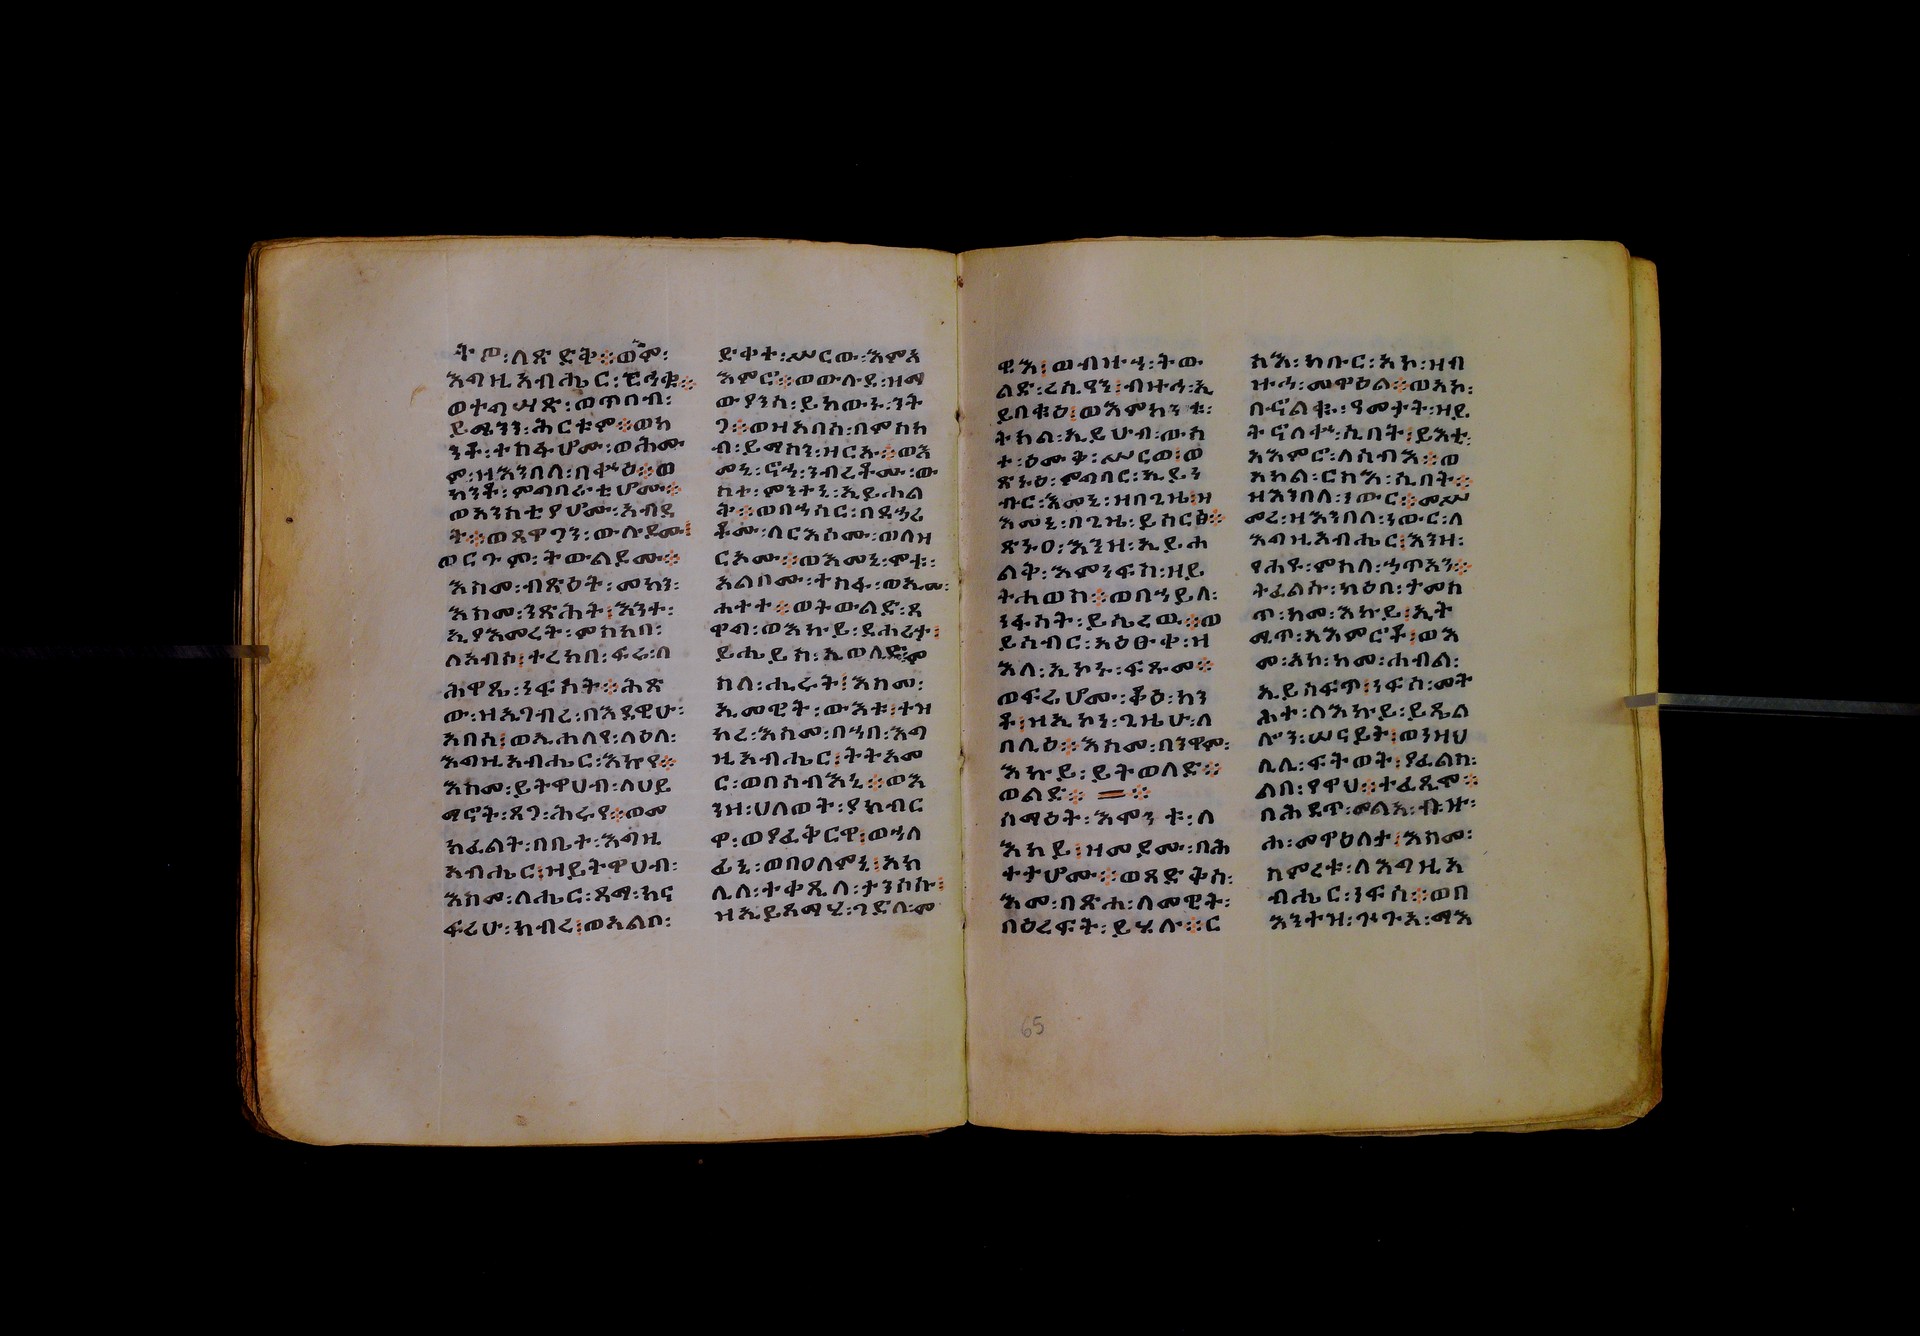 እግዚአብሔር፡
ወተግሣጽ፡ወጥበብ፡
ይሜንን፡ሕርቱም፡፡ወከ
ንቶ፡ተስፋሆሙ፡ወሕሙ
ም፡ዘእንበለ፡በቍዕ፡፡ወ
ከንቶ፡ምግባራቲሆሙ፡፡
ወአንስቲያሆሙ፡አብደ
ት፡፡ወጸዋጋን፡ውሉደሙ፤
ወርጉም፡ትውልደሙ፡፡
እስመ፡ብጽዕት፡መካን፡
እስመ፡ንጽሕት፤እንተ፡
ኢያእመረት፡ምስካበ፡
ለአብሶ፤ተረክበ፡ፍሬ፡በ
ሕዋጼ፡ነፍሳት፡፡ሕጽ
ው፡ዘኢገብረ፡በእደዊሁ፡
አበሳ፤ወኢሐለየ፡ላዕለ፡
እግዚአብሔር፡እኩየ፡፡
እስመ፡ይትዋሀብ፡ለሀይ
ማኖት፡ጸጋ፡ሕሩየ፡፡ወመ
ክፈልት፡በቤተ፡እግዚ
አብሔር፤ዘይትዋሀብ፡
እስመ፡ለሔር፡ጻማ፡ሠና
ፍሬሁ፡ክብረ፤ወአልቦ፡
ድቀተ፡ሥርው፡እምአ
እምሮ፡፡ወውሉደ፡ዘማ
ውያንስ፡ይከውኑ፡ንት
ጋ፡፡ወዘአበሰ፡በምስካ
ብ፡ይማስን፡ዘርኡ፡፡ወእ
መኒ፡ኖኃ፡ንብረቶሙ፡ው
ስተ፡ምንተኒ፡ኢይሐል
ት፡፡ወበኃሳር፡በደኃሪ
ቶሙ፡ለርእሶሙ፡ወለዘ
ርኦሙ፡፡ወእመኒ፡ሞቱ፡
አልቦሙ፡ተስፋ፡ወኢመ፡
ሐተተ፡፡ወትውልድ፡ጸ
ዋግ፡ወእኩይ፡ደሐሪታ፤
ይሔይስ፡ኢወሊድ፡ም
ስለ፡ሒሩት፤እስመ፡
ኢመዊት፡ውእቱ፤ተዝ
ካረ፡እስመ፡በኀበ፡እግ
ዚአብሔር፤ትትአመ
ር፡ወበሰብእኒ፡፡ወእ
ንዘ፡ሀለወት፡ያከብር
ዋ፡ወያፈቅርዋ፤ወኃለ
ፊኒ፡ወበዐለምኒ፤አክ
ሊለ፡ተቀጺለ፡ታንሶሱ፤
ዘኢይጸማሂ፡ገድለ፡መ
ዊእ፤ወብዙኃ፡ትው
ልድ፡ረሲዓን፤ብዙኃ፡ኢ
ይበቁዕ፤ወእምከንቱ፡
ትክል፡ኢይሁብ፡ውስ
ተ፡ዕሙቅ፡ሥርወ፤ወ
ጽኑዕ፡ምግባር፡ኢይነ
ብር፡እመኒ፡ዘበጊዜ፤ዘ
እመኒ፡በጊዜ፡ይሰርፅ፡፡
ጽኑዐ፡እንዘ፡ኢይሐ
ልቅ፡እምነፍስ፡ዘይ
ትሐወስ፡፡ወበኃይለ፡
ነፋሳት፡ይሤረዉ፡፡ወ
ይሰብር፡አዕፁቀ፡ዘ
እለ፡ኢኮኑ፡ፍጹመ፡፡
ወፍሬሆሙ፡ቆዕ፡ከን
ቶ፤ዘኢኮነ፡ጊዜሁ፡ለ
በሊዕ፡፡እስመ፡በንዋም፡
እኩይ፡ይትወለድ፡፡
ወልድ፡፡
ሰማዕት፡እሞንቱ፡ለ
እከይ፤ዘመደሙ፡በሕ
ተታሆሙ፡፡ወጻድቅሰ፡
እመ፡በጽሐ፡ለመዊት፡
በዕረፍት፡ይሄሉ፡፡ር
ስእ፡ክቡር፡አኮ፡ዘብ
ዙኃ፡መዋዕል፡፡ወአኮ፡
በኆልቁ፡ዓመታት፡ዘይ
ትኆለቍ፡ሲበት፤ይእቲ፡
አእምሮ፡ለሰብእ፡፡ወ
አካል፡ርስእ፡ሲበት፡፡
ዘእንበለ፡ነውር፡፡መሥ
መረ፡ዘእንበለ፡ነውር፡ለ
እግዚአብሔር፤እንዘ፡
የሐዩ፡ምስለ፡ኃጥአን፡፡
ትፈልሱ፡ክዕበ፡ታመስ
ጥ፡ከመ፡እኩይ፤ኢት
ሚጥ፡አእምሮቶ፤ወእ
መ፡አኮ፡ከመ፡ሐብል፡
ኢይስፍጥ፤ነፍሰ፡መት
ሕተ፡ለእኩይ፡ይጼል
ሎን፡ሠናይት፤ወንዝህ
ሊለ፡ፍትወት፡ያፈልስ፡
ልበ፡የዋህ፡፡ተፈጺሞ፡፡
በሕደጥ፡መልአ፡ብዙ፡
ኃ፡መዋዕለተ፤እስመ፡
ስምረቱ፡ለእግዚአ
ብሔር፡ነፍሱ፡፡ወበ
እንተዝ፡ጕጉአ፡ማእ